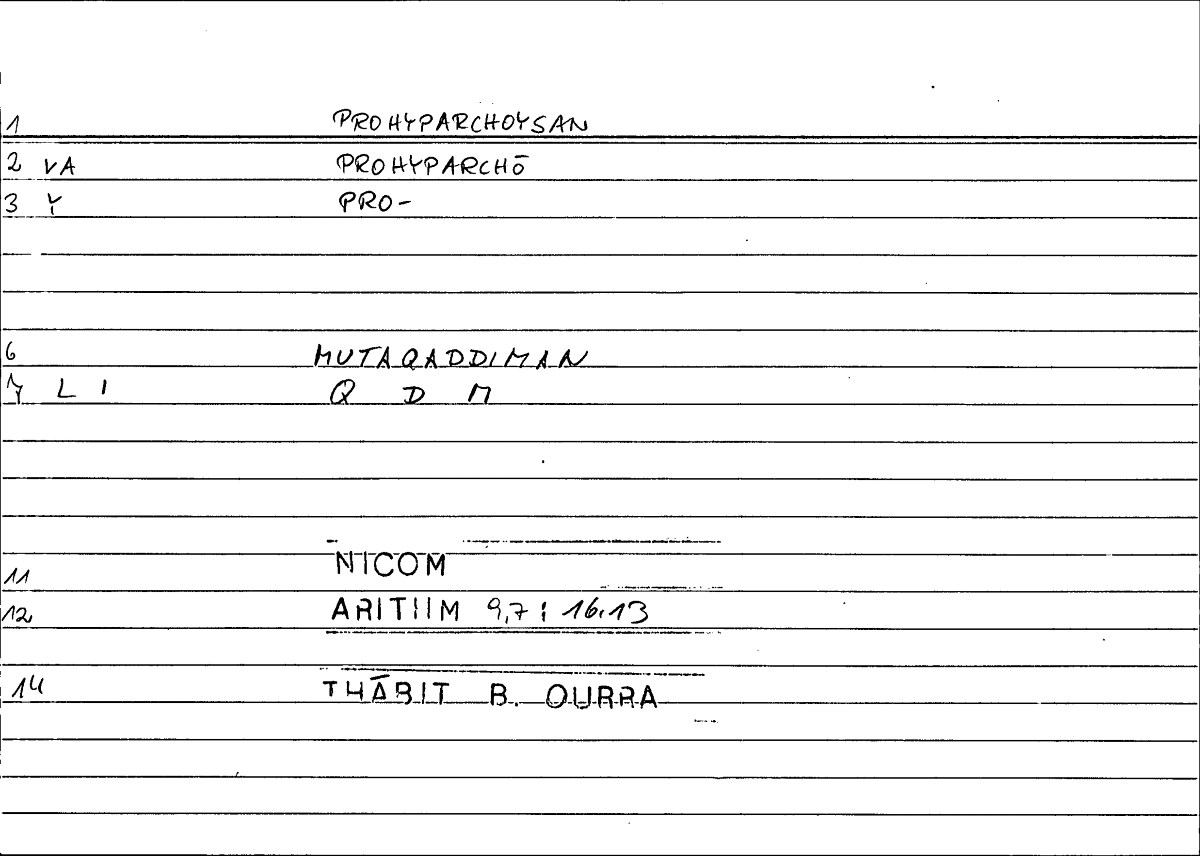 1 PROHYPARCHOYSAN
2 VA PROHYPARCHŌ
3 Y PRO-
6 MUTAQADDIMAN
7 L I Q D M
11 NICOM
12 ARITHM 9,7 ; 16.13
14 THĀBIT B. QURRA